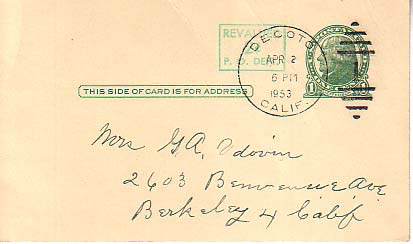 REVALUED
P. O. DEPT.
DECOTO
APR 2
6 PM
1953
CALIF.
1 1
THIS SIDE OF CARD IS FOR ADDRESS
Mrs G.A. Udovin
2603 Benvenue Ave
Berkeley 4 Calif